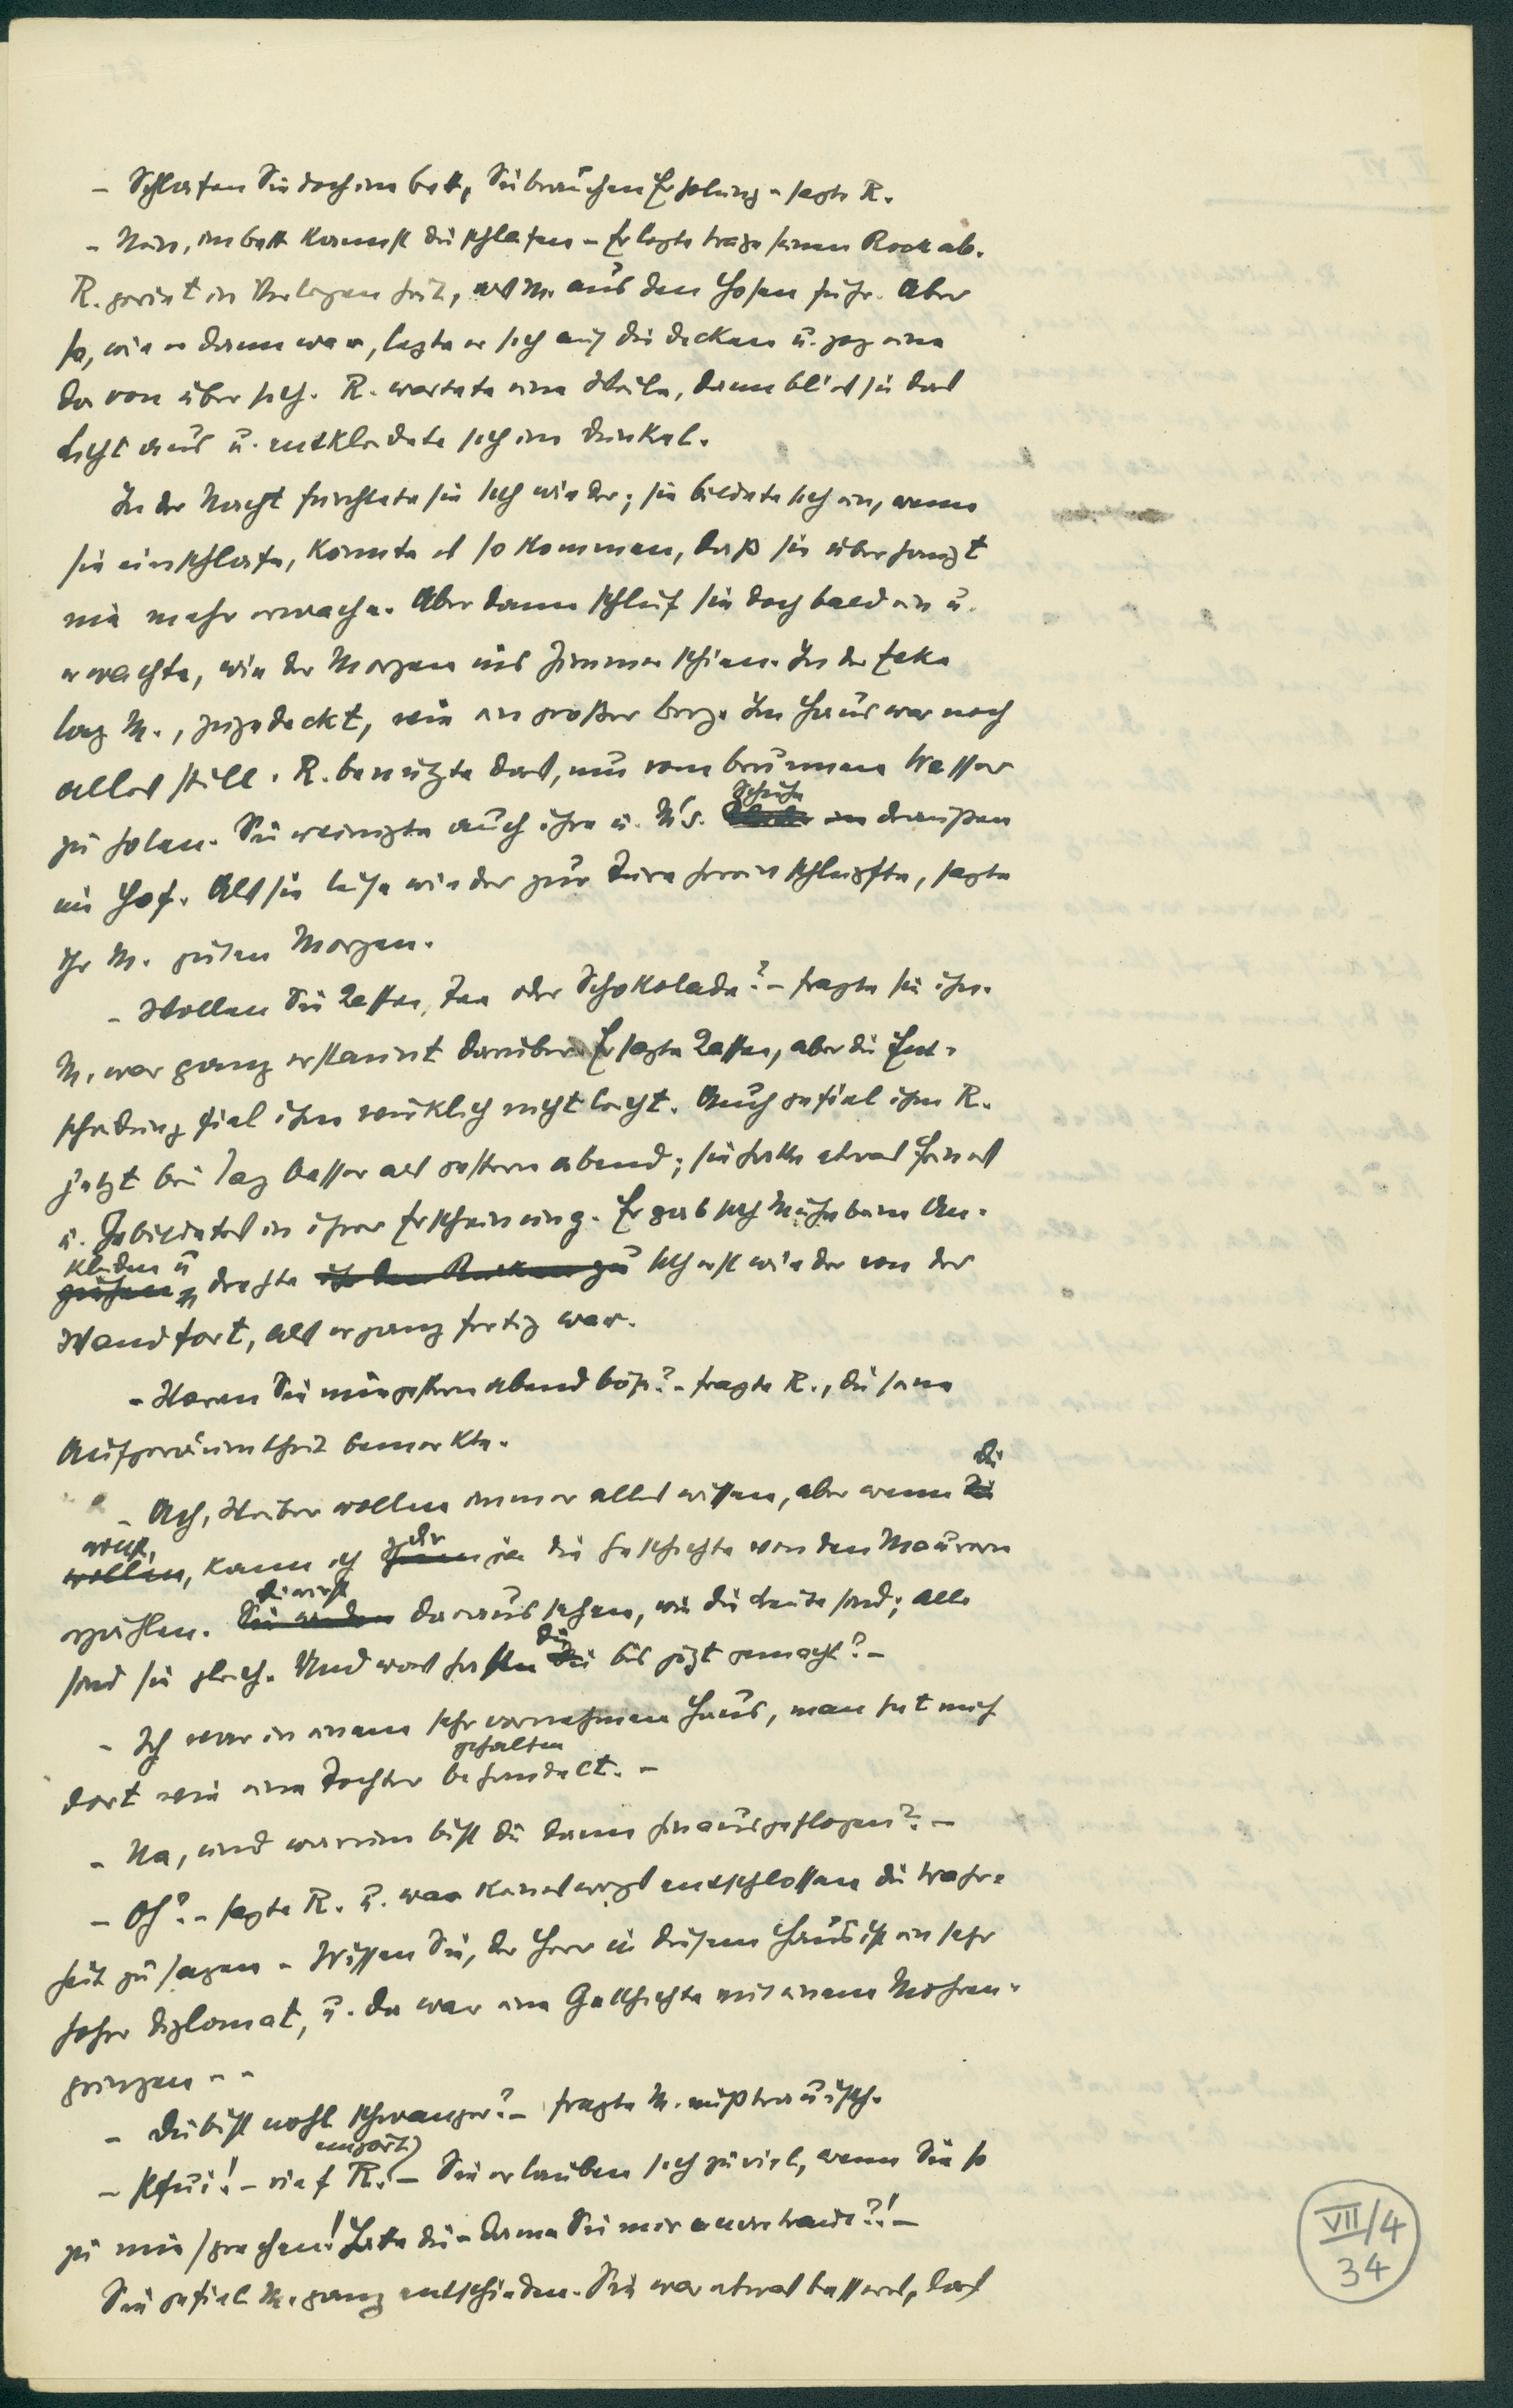 – Schlafen Sie doch im Bett, Sie brauchen Erholung – sagte R.
– Nein, im Bett kannst du schlafen – Er legte träge seinen Rock ab.
R. geriet in Verlegenheit, als M. aus den Hosen fuhr. Aber
so, wie er dann war, legte er sich auf die Decken u. zog eine
davon über sich. R. wartete eine Weile, dann blies sie das
Licht aus u. entkleidete sich im Dunkel.
In der Nacht fürchtete sie sich wieder; sie bildete sich ein, wenn
sie einschlafe, könnte es so kommen, daß sie überhaupt
nie mehr erwache. Aber dann schlief sie doch bald ein u.
erwachte, wie der Morgen ins Zimmer schien. In der Ecke
lag M., zugedeckt, wie ein großer Berg. Im Haus war noch
alles still. R. benützte das, um vom Brunnen Wasser
zu holen. Sie reinigte auch ihre u. M's. Schuhe draußen
im Hof. Als sie leise wieder zur Türe hereinschlüpfte, sagte
ihr M. guten Morgen.
– Wollen Sie Kaffee, Tee oder Schokolade? – fragte sie ihn.
M. war ganz erstaunt darüber. Er sagte Kaffee, aber die Ent-
scheidung fiel ihm wirklich nicht leicht. Auch gefiel ihm R.
jetzt bei Tag besser als gestern abend; sie hatte etwas Feines
u. Gebildetes in ihrer Erscheinung. Er gab sich Mühe beim An-
kleiden u
ziehen, drehte ihr den Rücken zu sich erst wieder von der
Wand fort, als er ganz fertig war.
– Waren Sie mir gestern abend bös? – fragte R., die seine
Aufgeräumtheit bemerkte.
du
– Ach, Weiber wollen immer alles wissen, aber wenn Sie
willst, dir
wollen, kann ich Ihnen ja die Geschichte von den Maurern
du wirst
erzählen. Sie werden daraus sehen, wie die Leute sind; alle
du
sind sie gleich. Und was hasten Sie bis jetzt gemacht? –
– Ich war in einem sehr vornehmen Haus, man hat mich
gehalten
dort wie eine Tochter behandelt. –
– Na, und warum bist du dann hinausgeflogen? –
– Oh? – sagte R. u. war keineswegs entschlossen die Wahr-
heit zu sagen – Wissen Sie, der Herr in diesem Haus ist ein sehr
hoher Diplomat, u. da war eine Geschichte mit einem Mohren-
prinzen – –
– Du bist wohl schwanger? – fragte M. mißtrauisch.
empört
– Pfui! – rief R. – Sie erlauben sich zuviel, wenn Sie so
zu mir sprechen! Hätte die – Dame Sie mir anvertraut?! –
Sie gefiel M. ganz entschieden. Sie war etwas besseres, das
VII/4
34